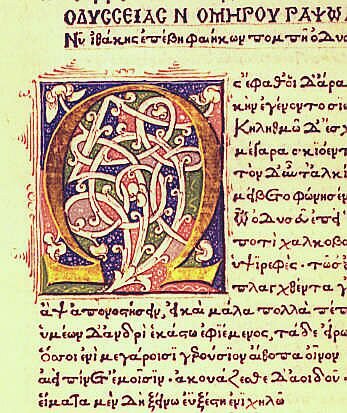 ΟΔΥΣΣΕΙΑΣ Ν ΟΜΗΡΟΥ ΡΑΨΩΔ
Νῦ ἰθάκης ἐπέβη φαιήκων πομπῇ ὀδυ
Ὣς ἔφαθ' οἱ δ' ἄρα
κὴν ἐγένοντο σι
Κηληθμῷ δ' ἔσχ
μέγαρα σκιόεντ
τὸν δ' αὖτ' ἀλκί
μείβετο φώνησέν
ὦ ὀδυσ ἐπεὶ
ποτὶ χαλκοβα
ὑψιρεφές· τῶ σ'
πλαγχθέντα γ
ἂψ ἀπονοστήσειν, εἰ καὶ μάλα πολλὰ πέπ
ὑμέων δ' ἀνδρὶ ἑκάστω ἐφιέμενος, τάδε εἴρω
ὅσσοι ἐνὶ μεγάροισι γερούσιον αἴθοπα οἶνον
αἰεὶ πίνετ' ἐμοῖσιν· ἀκουάζεσθε δ' ἀοιδοῦ·
εἵματα μὲν δὴ ξείνω ἐϋξέστη ἐνὶ χηλῶ